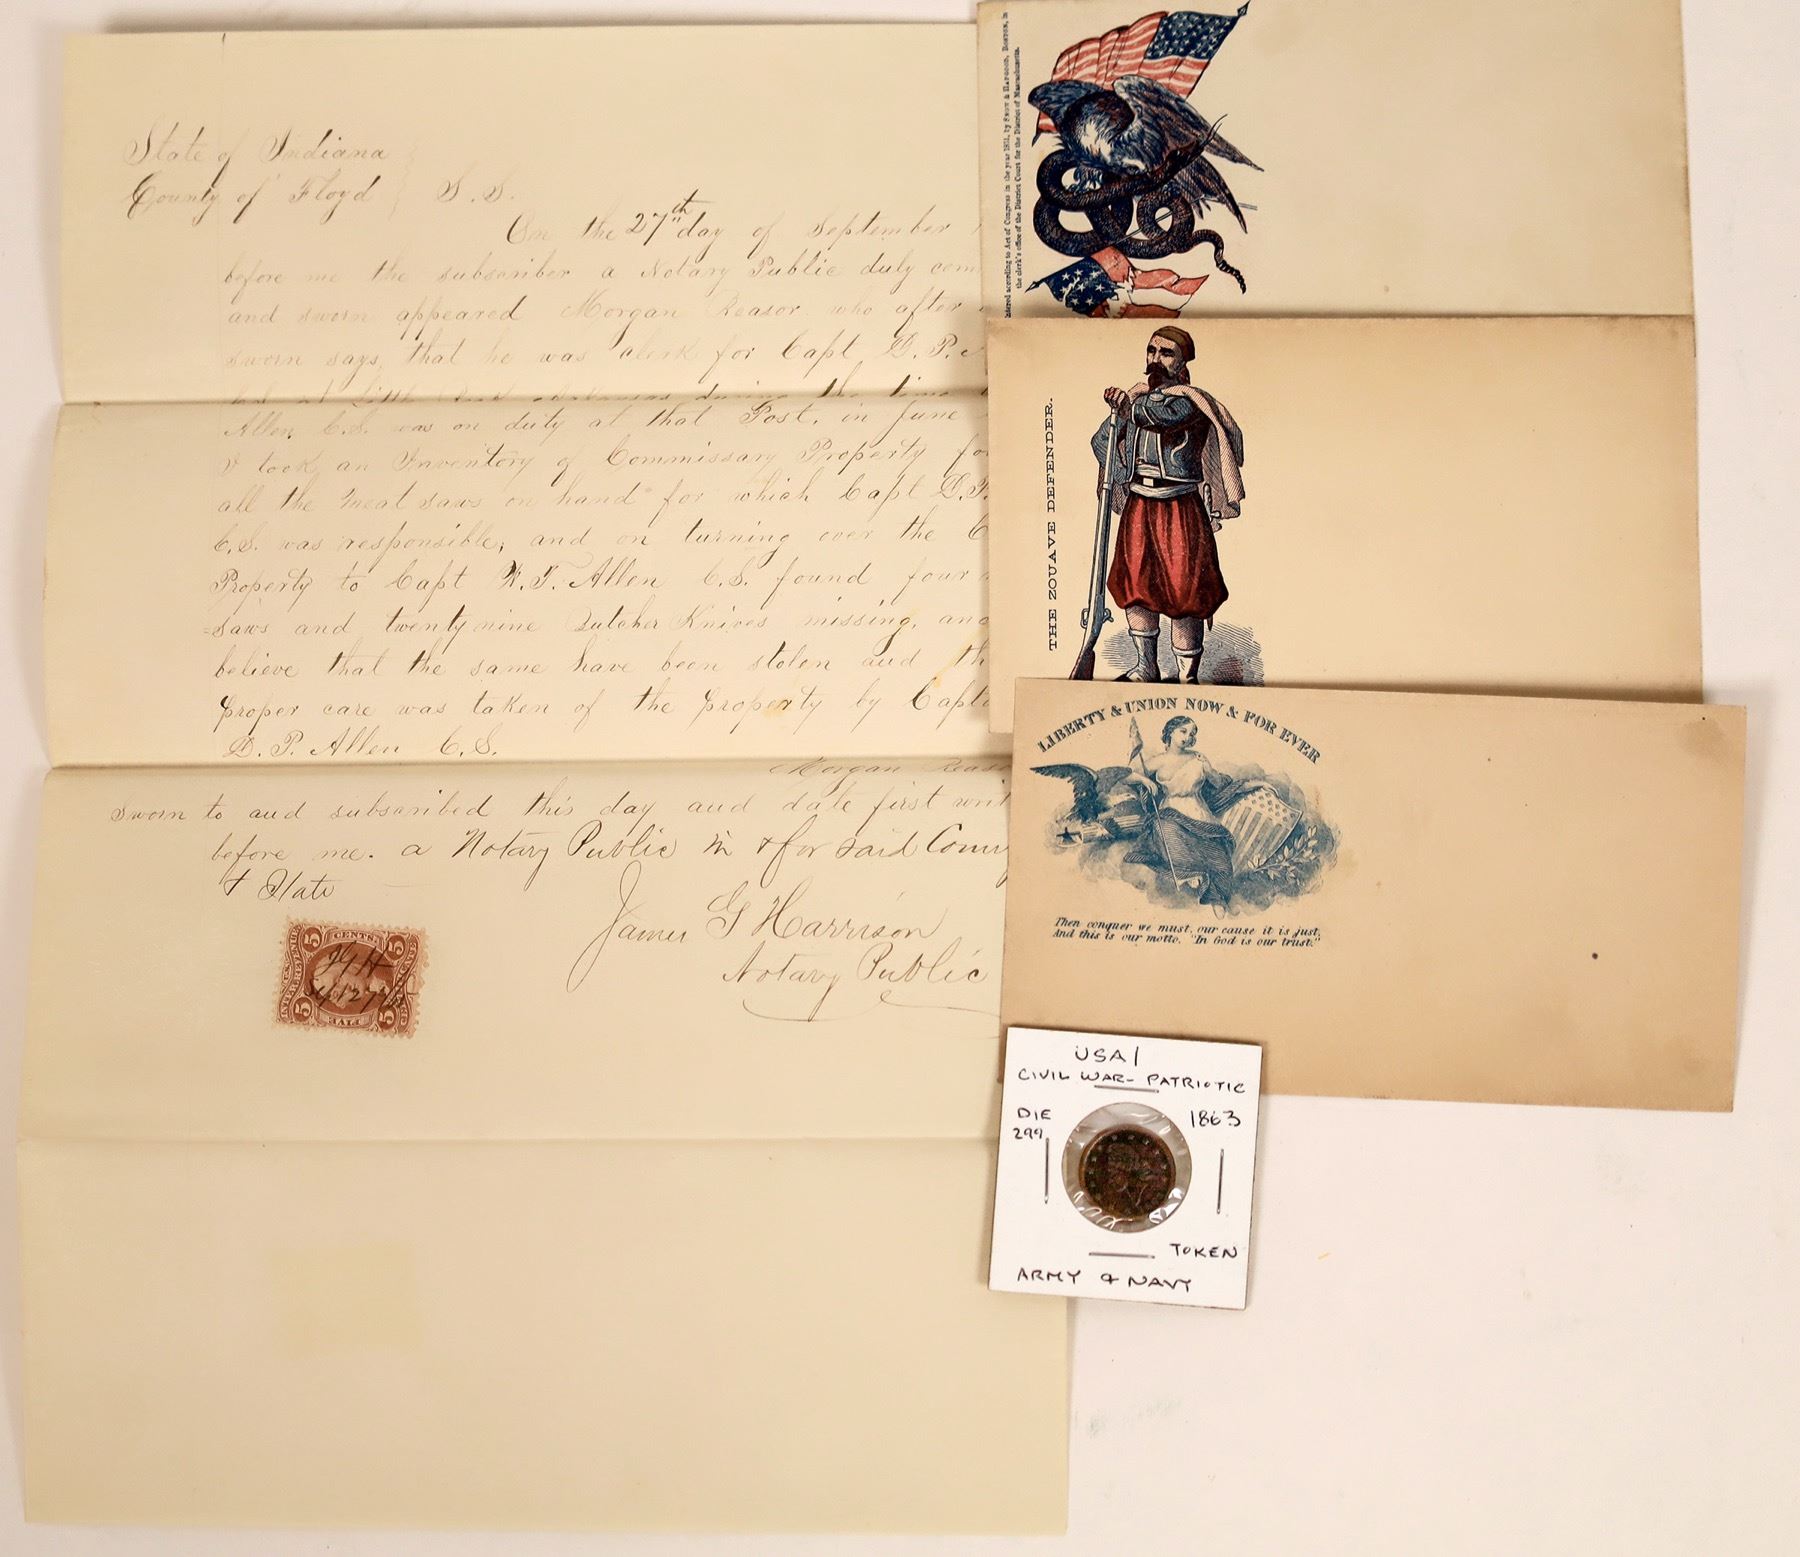 State of Indiana
County of Floyd } S.S.
On the 27th day of September
before me the subscriber a Notary Public duly com
and sworn appeared Morgan Reasor who after
sworn says, that he was clerk for Capt D. P.
at Little Rock Arkansas during the time
Allen, C.S. was on duty at that Post, in June
I took an Inventory of Commissary Property
all the meat saws on hand for which Capt D. P.
C.S. was responsible; and on turning over the C
Property to Capt W. F. Allen C.S. found four
saws and twenty nine Butcher Knives missing, and
believe that the same have been stolen and th
proper care was taken of the property by Capt
D. P. Allen C.S.
Morgan Reas
Sworn to and subscribed this day and date first writ
before me. a Notary Public in & for said Coun
& State
James G Harrison
Notary Public
INTER. REVENUE
5 CENTS 5
J G H
Sep 27th
5 FIVE 5
Entered according to Act of Congress in the year 1861, by SNOW & HAPGOOD, BOSTON, in
the clerk's office of the District Court for the District of Massachusetts.
THE ZOUAVE DEFENDER.
LIBERTY & UNION NOW & FOR EVER
Then conquer we must, our cause it is just,
And this is our motto, "In God is our trust."
USA/
CIVIL WAR- PATRIOTIC
DIE 1863
299
TOKEN
ARMY & NAVY